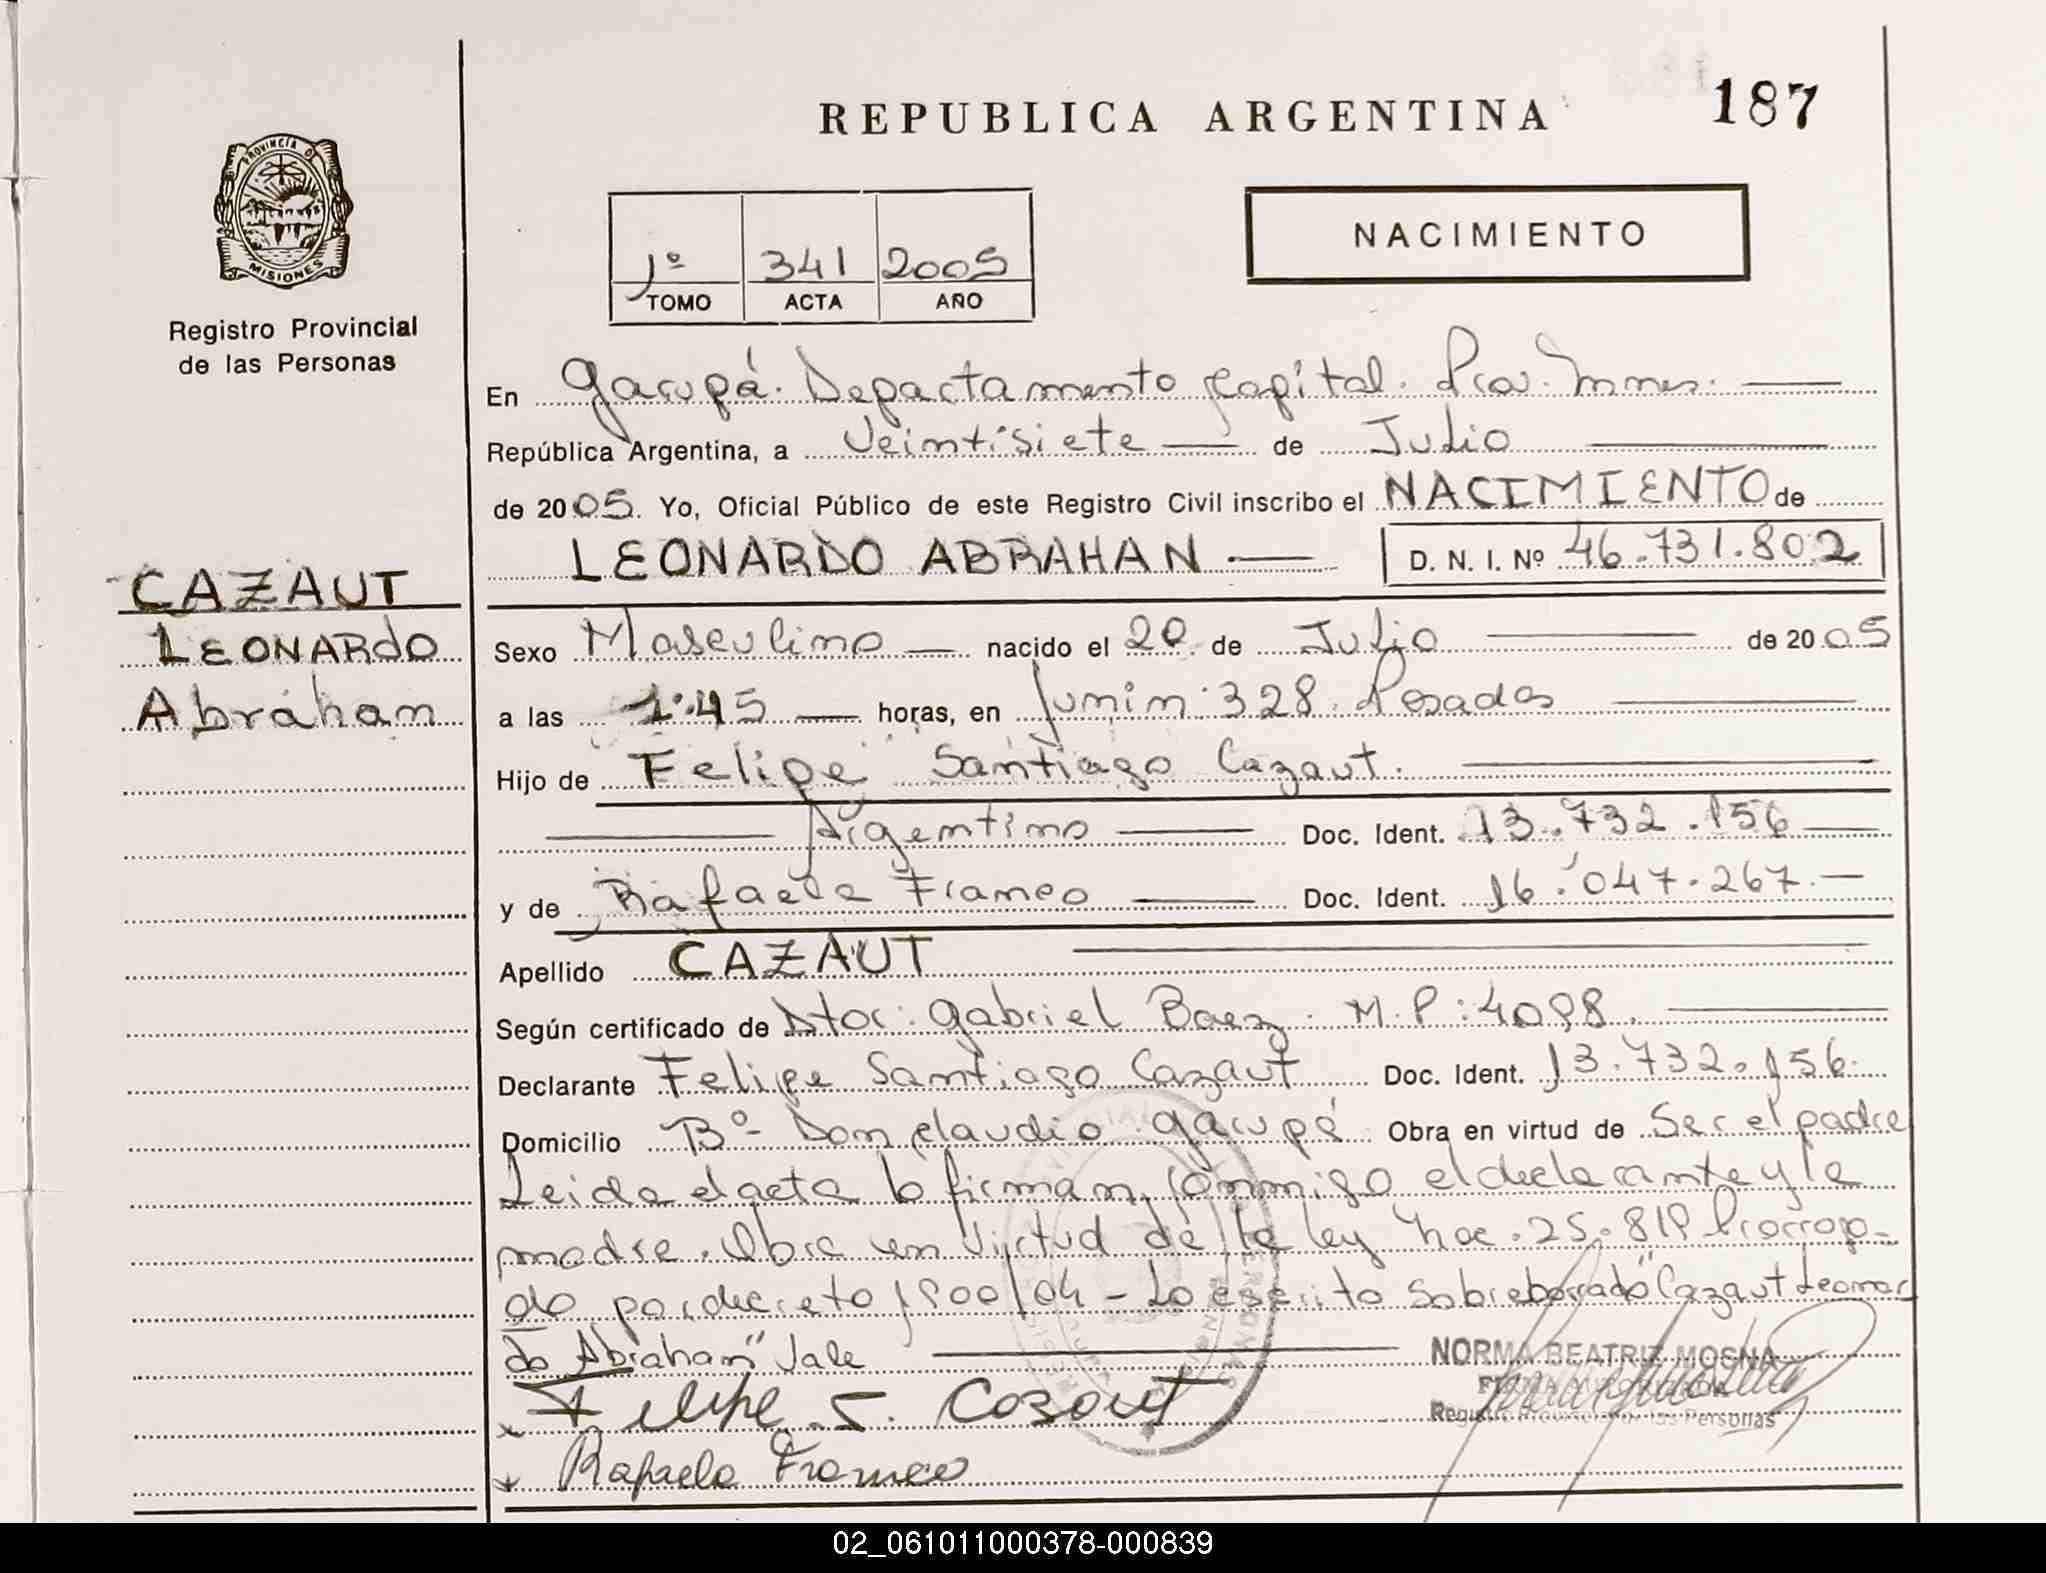 187
REPUBLICA ARGENTINA
PROVINCIA DE
MISIONES
Registro Provincial
de las Personas
NACIMIENTO
1º 341 2005
TOMO ACTA AÑO
En Garupá. Departamento Capital. Pcia. Mnes.
República Argentina, a Veintisiete de Julio
de 2005. Yo, Oficial Público de este Registro Civil inscribo el NACIMIENTO de
LEONARDO ABRAHAN D. N. I. Nº 46.731.802
CAZAUT
LEONARDO
Abraham
Sexo Masculino nacido el 20 de Julio de 2005
a las 1:45 horas, en Junin 328. Posadas
Hijo de Felipe Santiago Cazaut.
Argentino Doc. Ident. 13.732.156
y de Rafaela Franco Doc. Ident. 16.047.267.
Apellido CAZAUT
Según certificado de Dtor: Gabriel Baez. M.P: 4098.
Declarante Felipe Santiago Cazaut Doc. Ident. 13.732.156.
Domicilio Bº Don Claudio Garupá Obra en virtud de Ser el padre
Leida el acta la firman conmigo el declarante y la
madre. Obra en Virtud de la ley nac. 25.819 Prorroga-
do por decreto 1900/04 - Lo escrito sobreborrado "Cazaut Leonar
do Abraham" Vale
Felipe S. Cazaut
Rafaela Franco
NORMA BEATRIZ MOSNA
Registro Provincial de las Personas
02_061011000378-000839